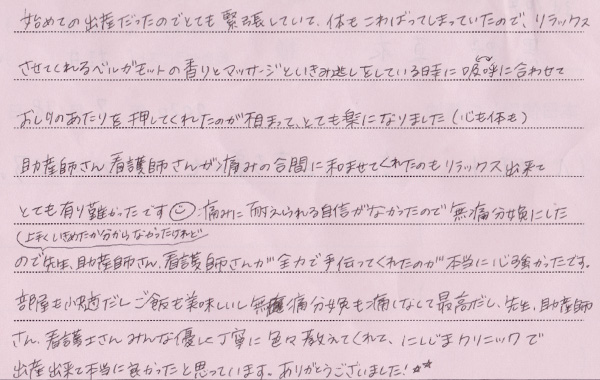 始めての出産だったのでとても緊張していて、体もこわばってしまっていたので、リラックス
させてくれるベルガモットの香りとマッサージといきみ逃しをしている時に呼吸に合わせて
おしりのあたりを押してくれたのが相まって、とても楽になりました(心も体も)
助産師さん看護師さんが痛みの合間に和ませてくれたのもリラックス出来て
とても有り難かったです 痛みに耐えられる自信がなかったので無痛分娩にした
(上手くいきめたか分からなかったけれど
ので先生、助産師さん、看護師さんが全力で手伝ってくれたのが本当に心強かったです。
部屋も快適だしご飯も美味しいし無痛分娩も痛くなくて最高だし、先生、助産師
さん、看護士さんみんな優しく丁寧に色々教えてくれて、にしじまクリニックで
出産出来て本当に良かったと思っています。ありがとうございました!☆☆